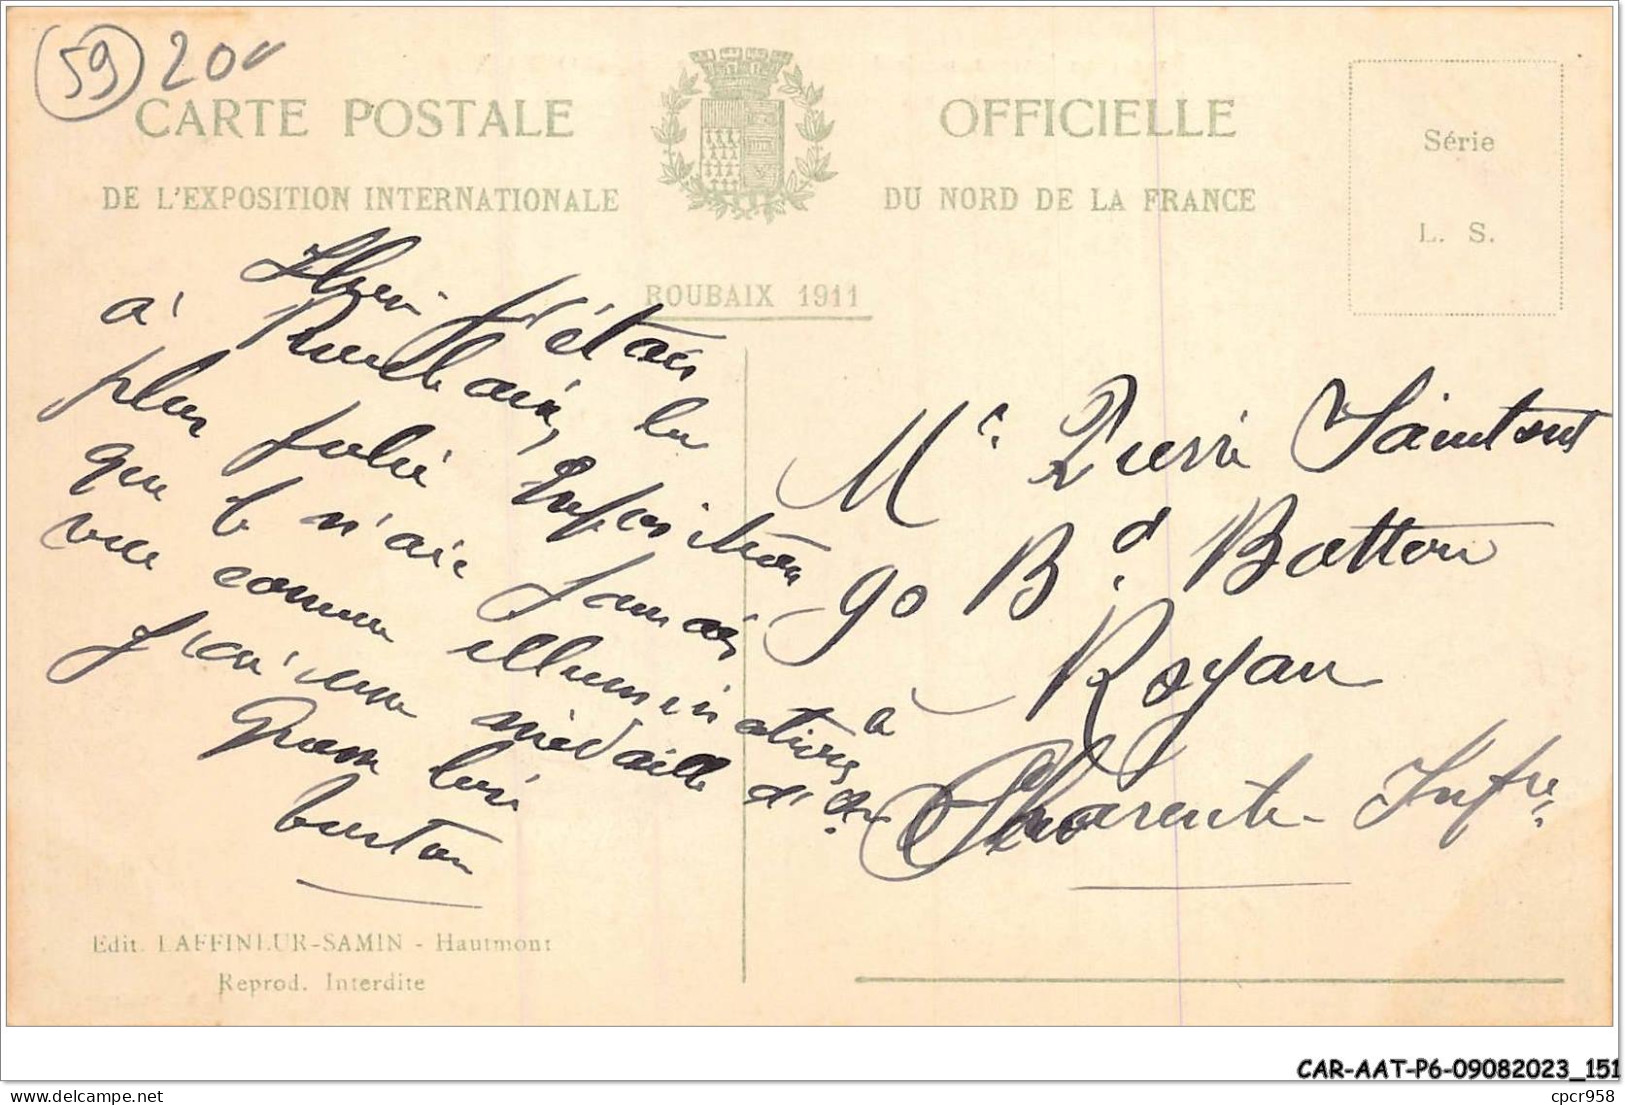 59 20
CARTE POSTALE OFFICIELLE
DE L'EXPOSITION INTERNATIONALE DU NORD DE LA FRANCE
ROUBAIX 1911
Série
L. S.
Hier j'étais
à Roubaix, la
plus jolie Exposition
que je n'aie jamais
vue comme illuminations
j'ai une médaille d'
Gros
Mr. Pierre
90 Bd. Botton
à Royan
Charente-Infre.
Edit. LAFFINEUR-SAMIN - Hautmont
Reprod. Interdite
CAR-AAT-P6-09082023_151
www.delcampe.net
cpcr958